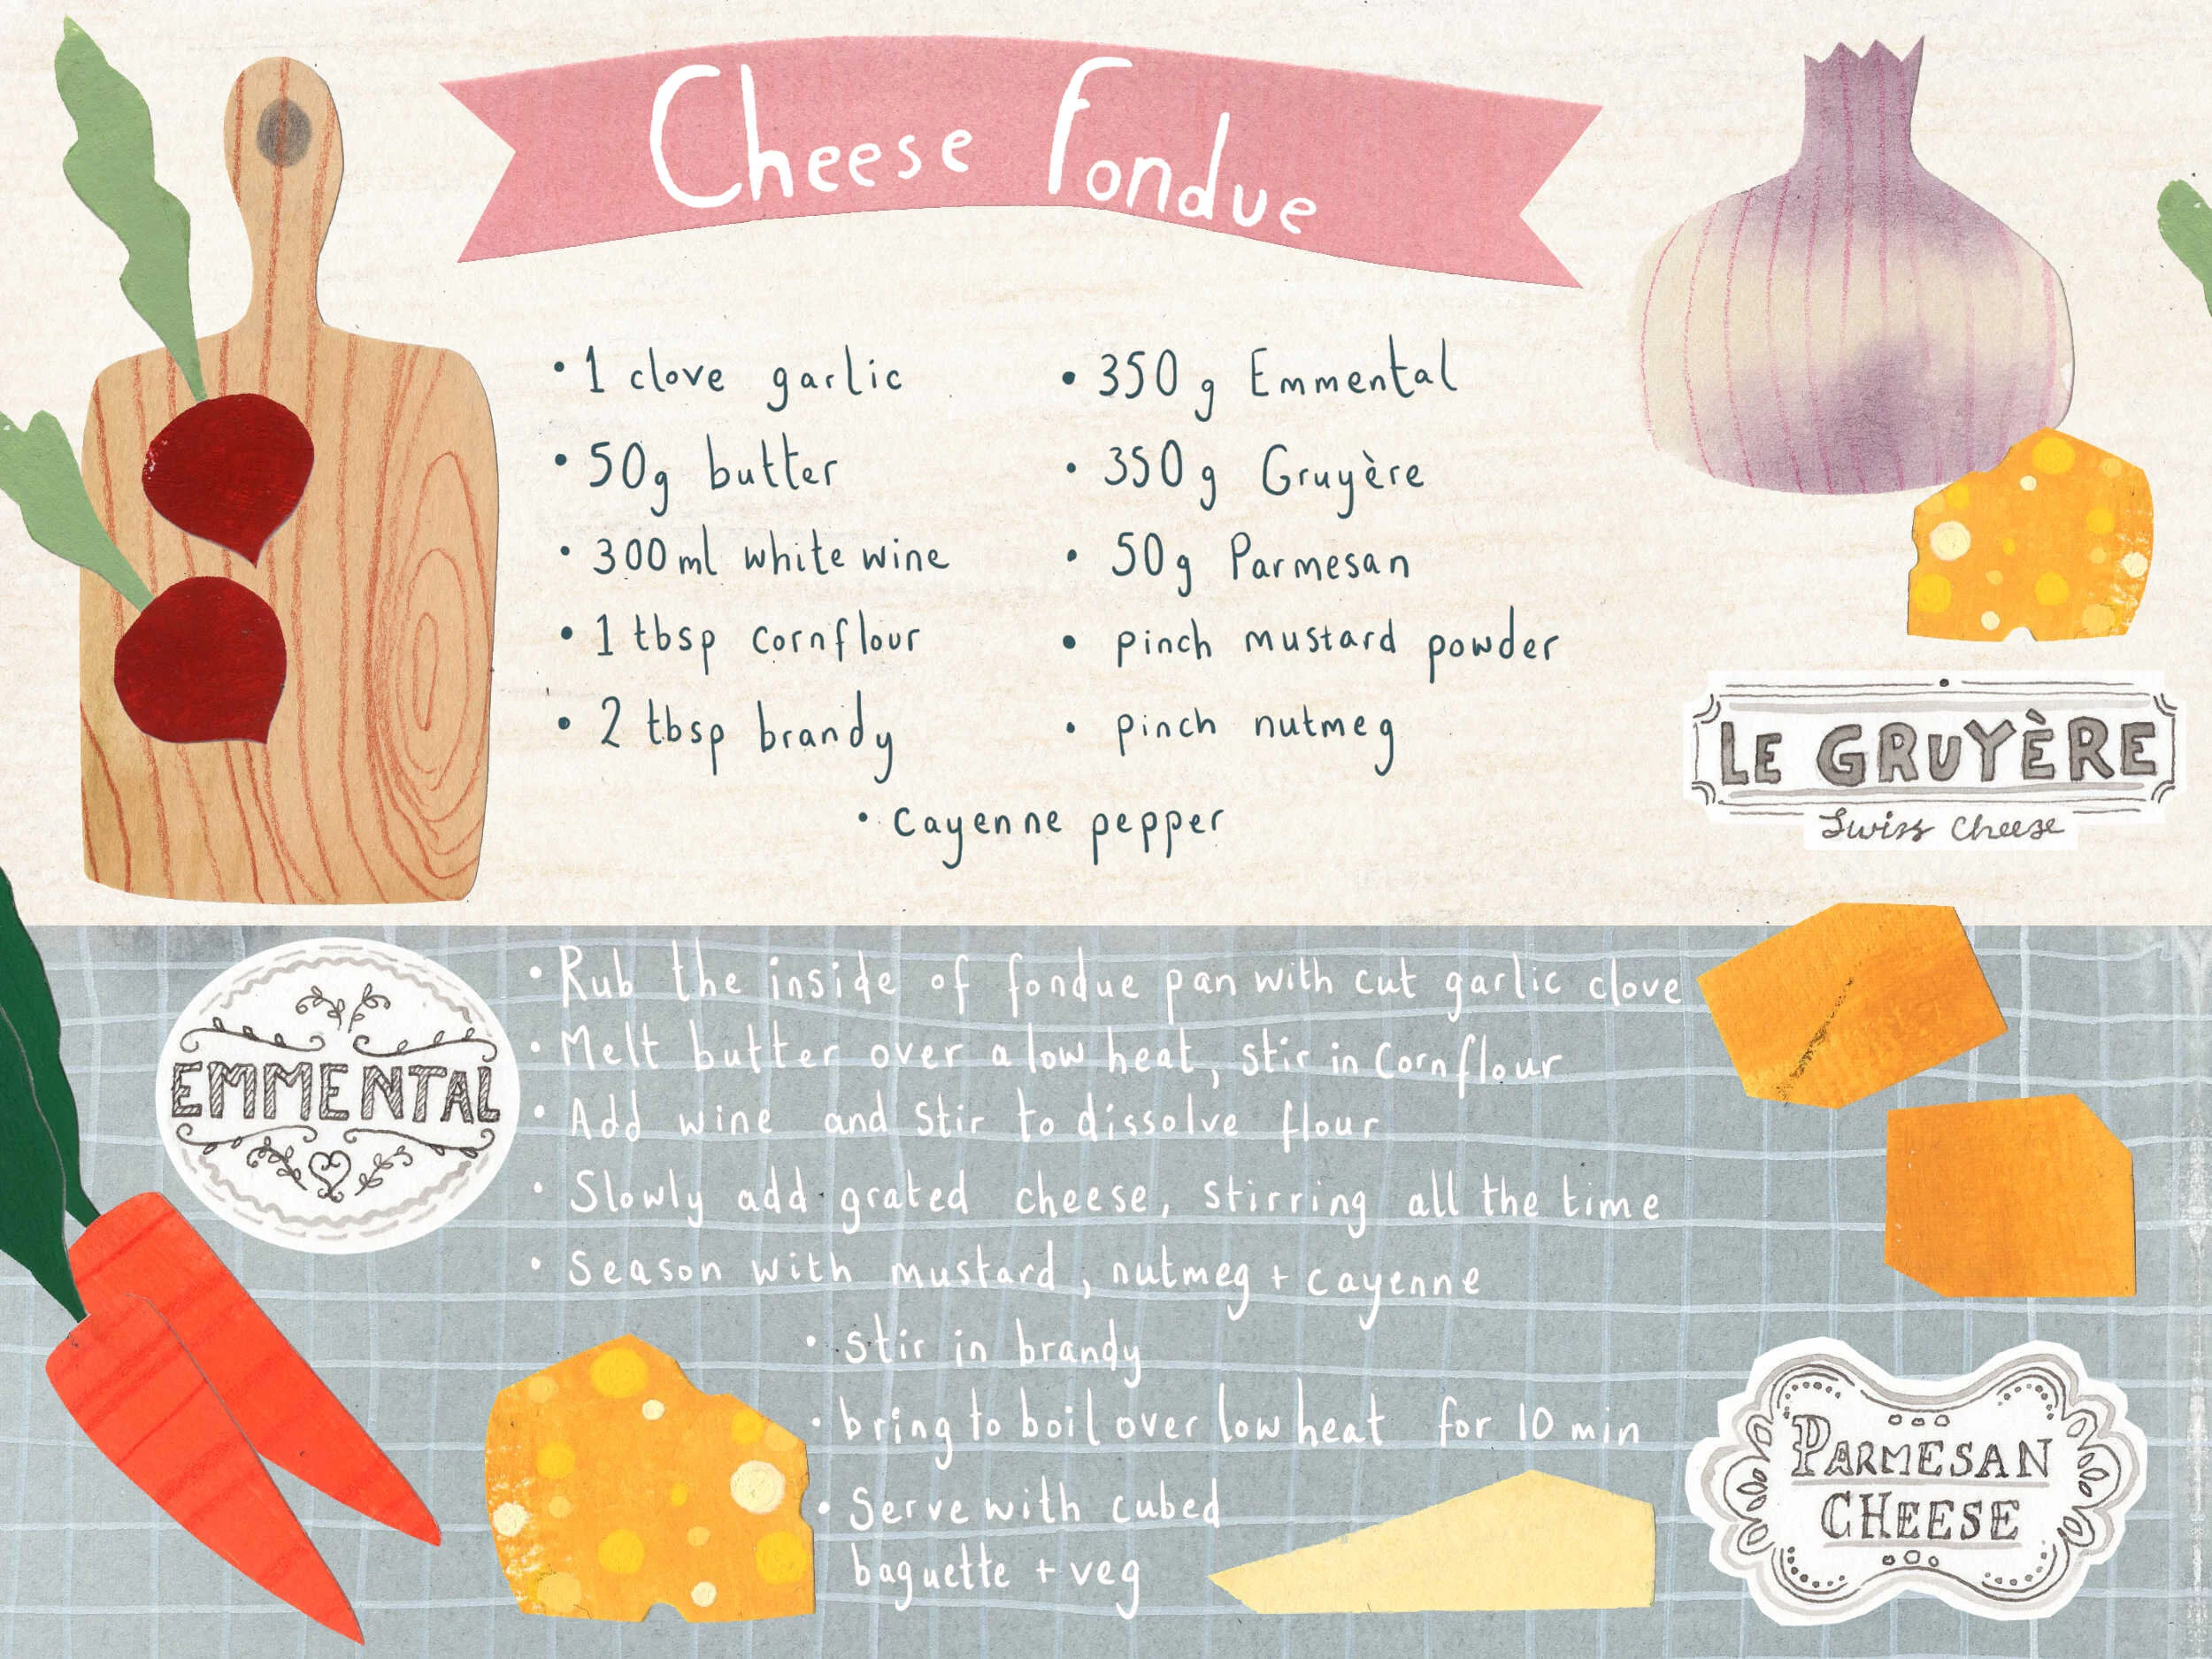 Cheese Fondue
• 1 clove garlic
• 50g butter
• 300ml white wine
• 1 tbsp cornflour
• 2 tbsp brandy
• 350g Emmental
• 350g Gruyère
• 50g Parmesan
• pinch mustard powder
• pinch nutmeg
• Cayenne pepper
LE GRUYÈRE
Swiss Cheese
EMMENTAL
• Rub the inside of fondue pan with cut garlic clove
• Melt butter over a low heat, stir in Cornflour
• Add wine and stir to dissolve flour
• Slowly add grated cheese, stirring all the time
• Season with mustard, nutmeg + cayenne
• stir in brandy
• bring to boil over low heat for 10 min
• Serve with cubed
baguette + veg
PARMESAN
CHEESE